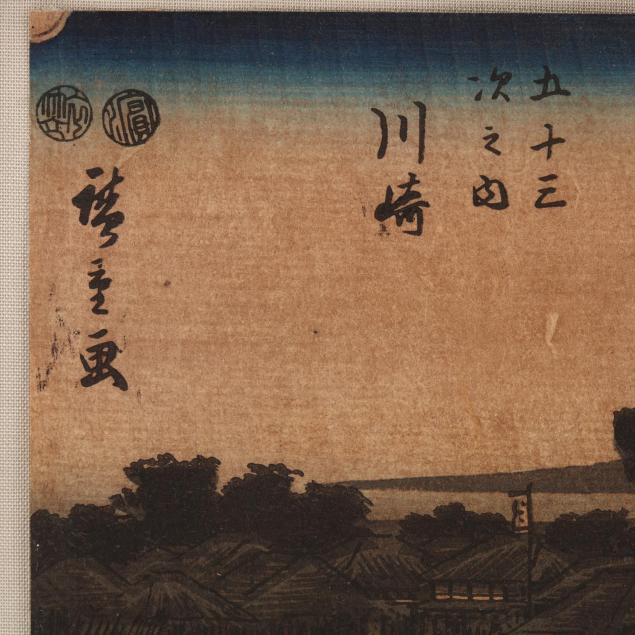 五十三
次之内
川崎
廣重画